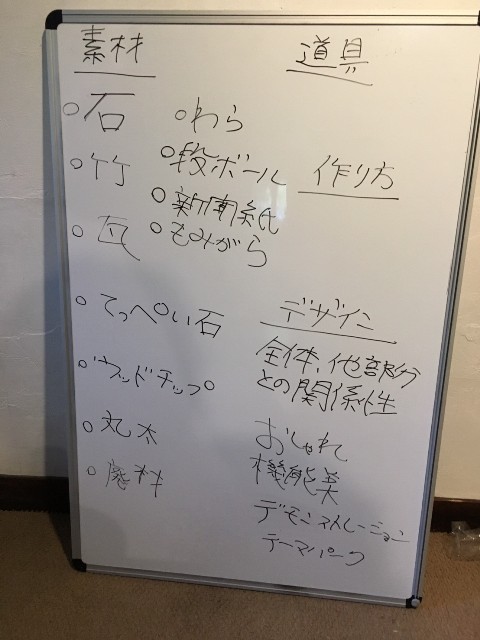 素材
○石
○竹
○瓦
○てっぺい石
○ウッドチップ
○丸太
○廃料
○わら
○段ボール
○新聞紙
○もみがら
道具
作り方
デザイン
全体、他部分
との関係性
おしゃれ
機能美
デモンストレーション
テーマパーク